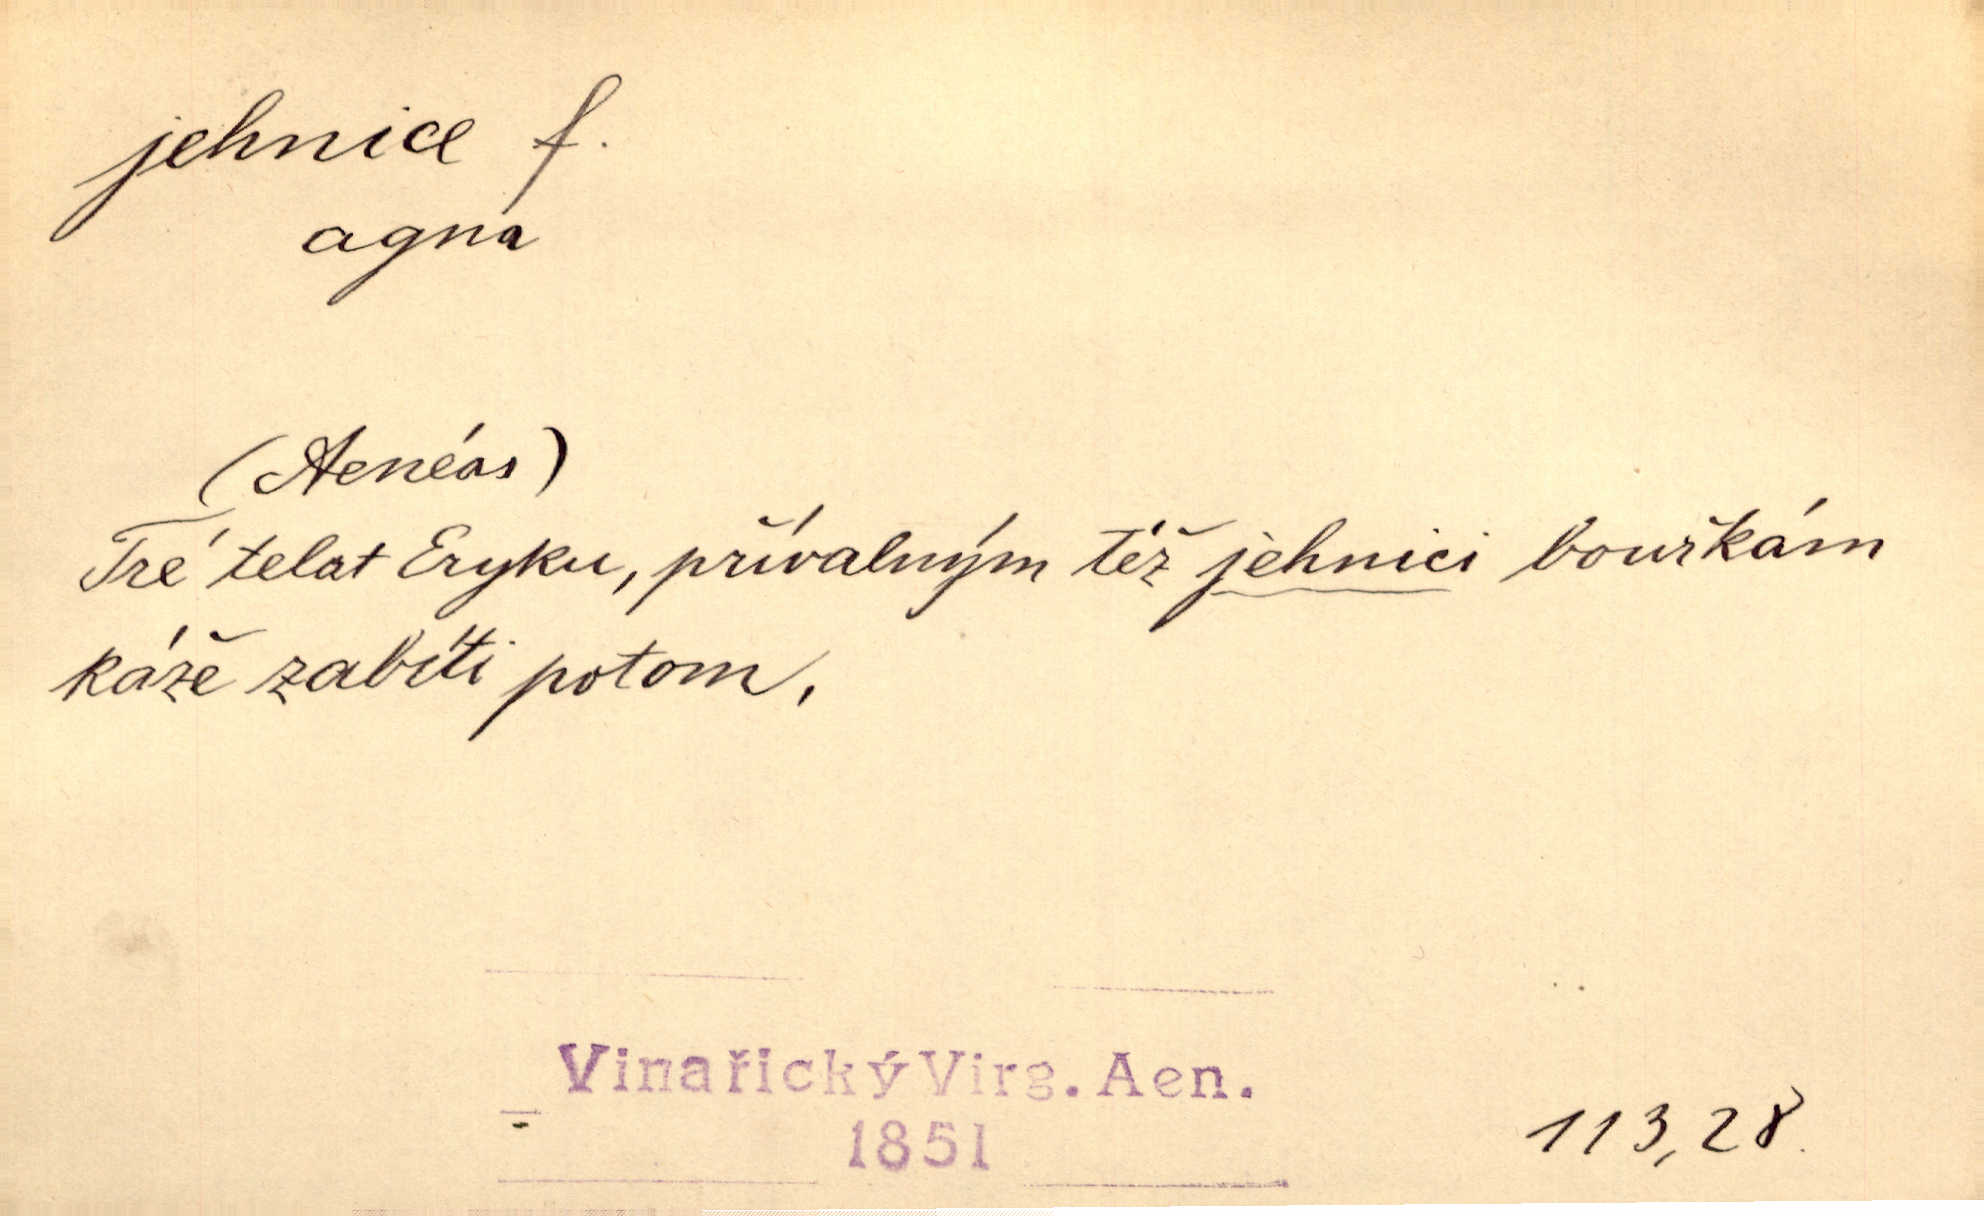 jehnice f.
agna
(Aenéas)
Tré telat Eryku, přívalným též jehnici bouřkám
káže zabíti potom,
Vinařický Virg. Aen.
1851
113,28.